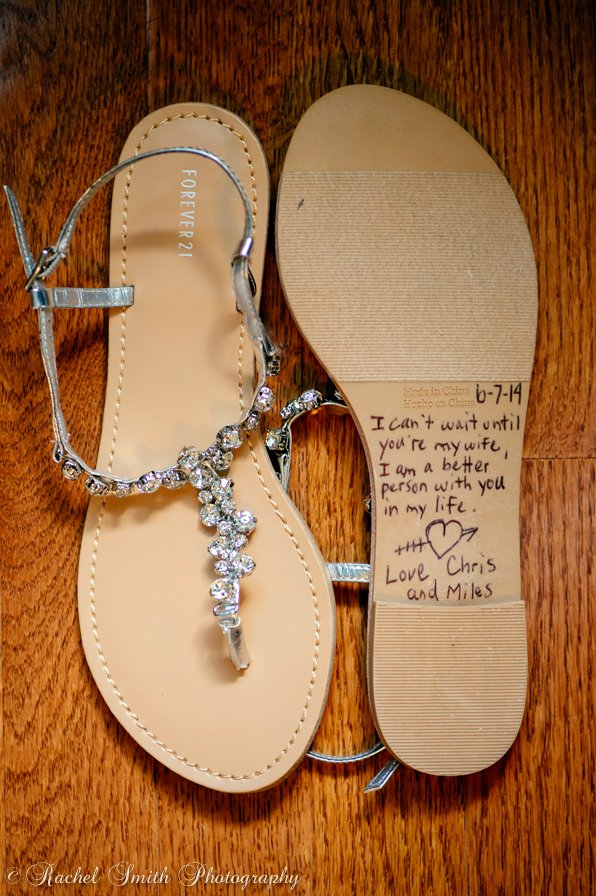 FOREVER 21
Made in China
Hecho en China
6-7-14
I can't wait until
you're my wife,
I am a better
person with you
in my life.
Love Chris
and Miles
© Rachel Smith Photography